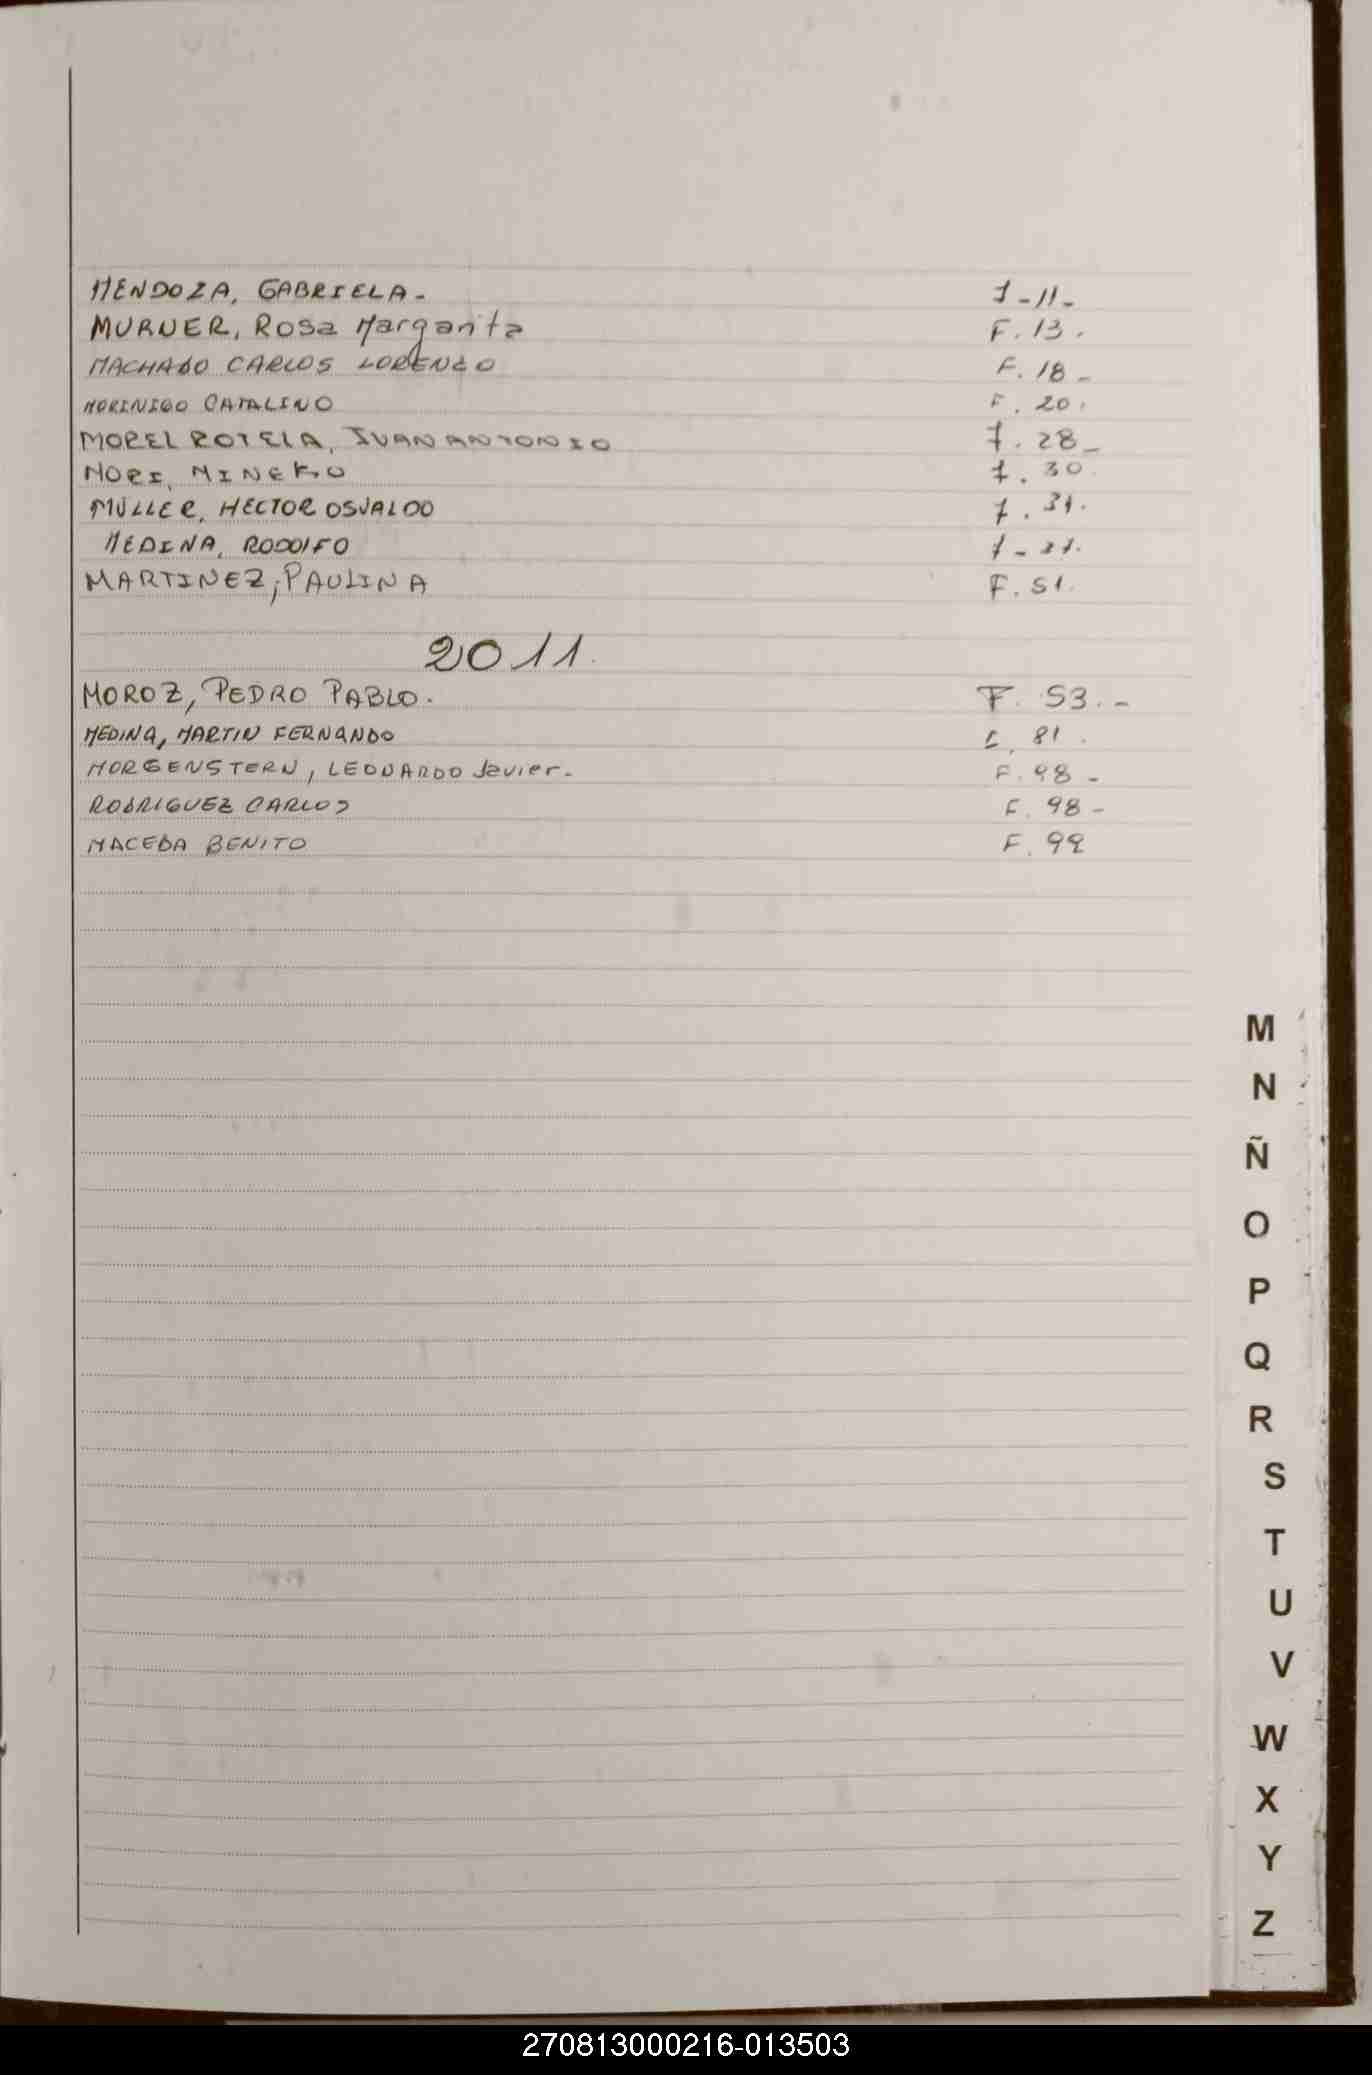 MENDOZA, GABRIELA- F-11-
MURNER, Rosa Margarita F. 13.
MACHADO CARLOS LORENZO F. 18-
MORINIGO CATALINO F. 20.
MOREL ROTELA, JUAN ANTONIO F. 28-
MORI, MINEKO F. 30.
MÜLLER, HECTOR OSVALDO F. 31.
MEDINA, RODOLFO F-31.
MARTINEZ, PAULINA F. 51.
2011.
MOROZ, PEDRO PABLO. F. 53.-
MEDINA, MARTIN FERNANDO 81.
MORGENSTERN, LEONARDO Javier- F. 98-
RODRIGUEZ CARLOS F. 98-
MACEDA BENITO F. 99
M
N
Ñ
O
P
Q
R
S
T
U
V
W
X
Y
Z
270813000216-013503